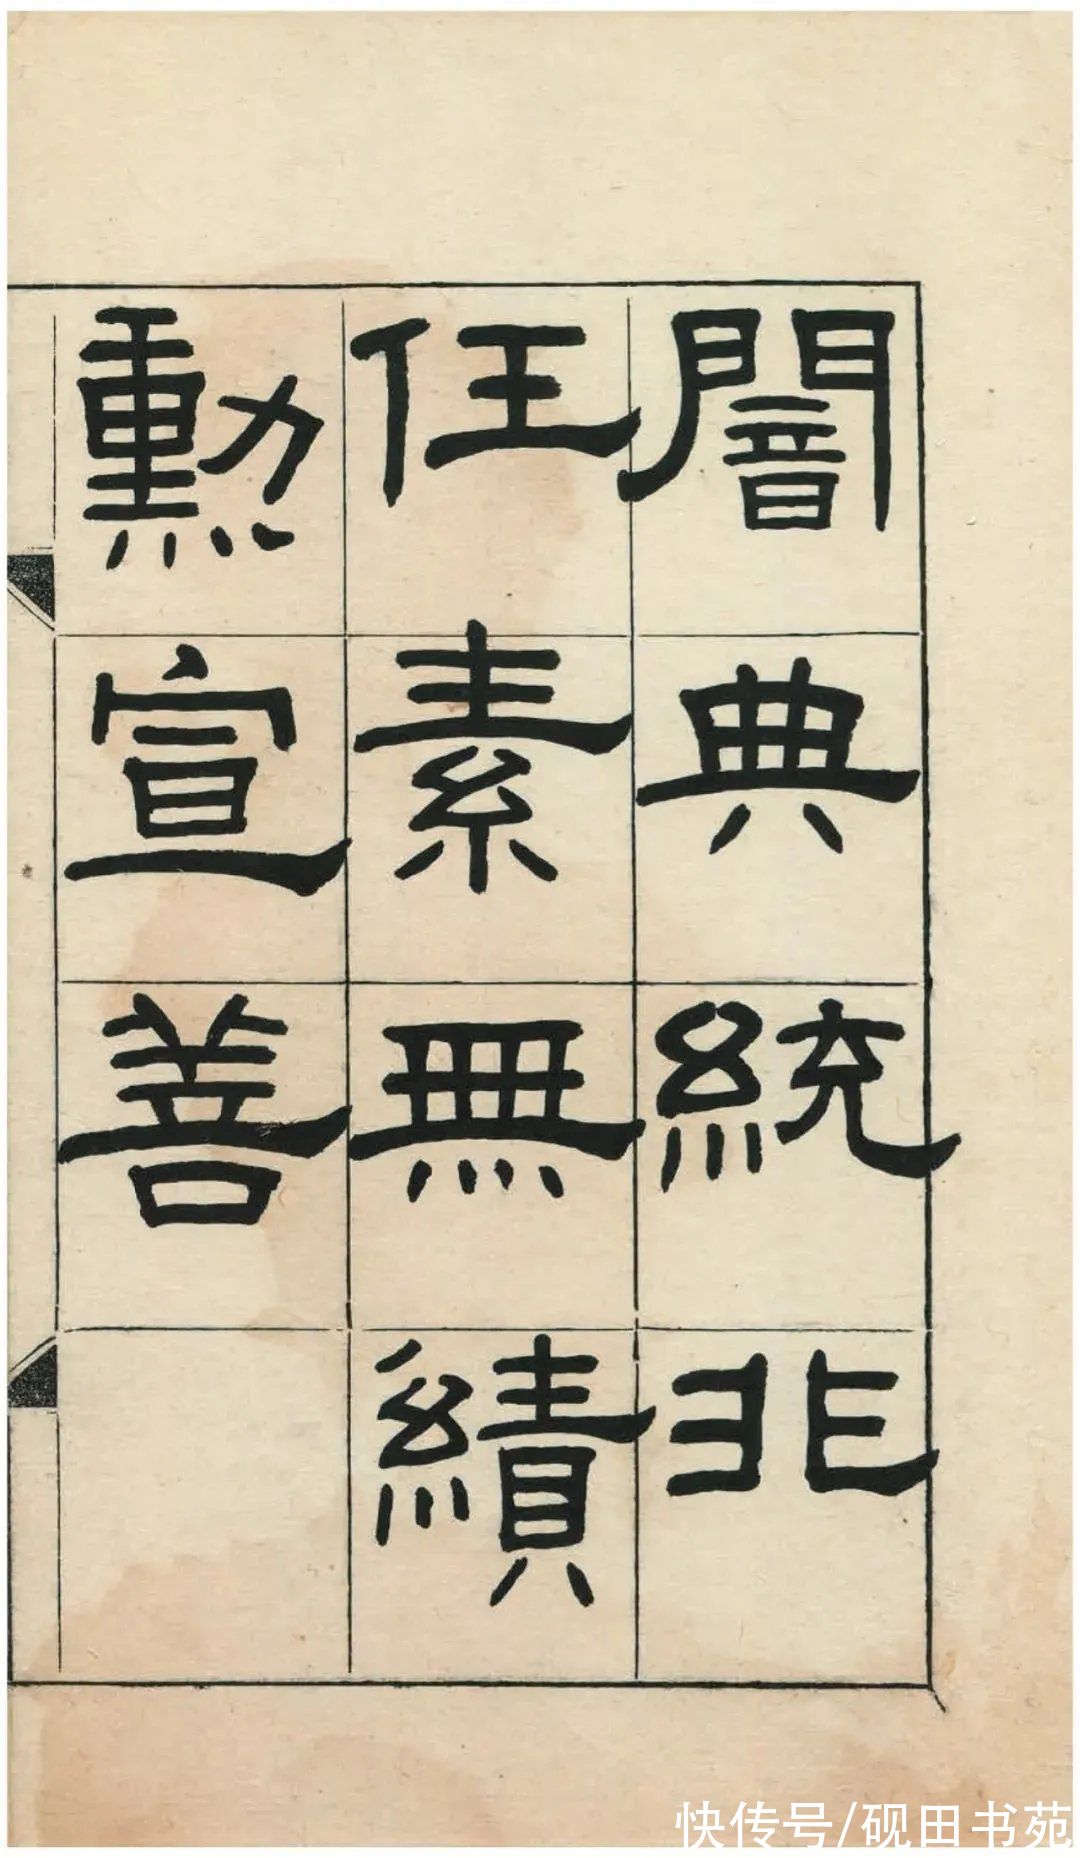 闇典統非
任素無績
勳宣善
快传号/砚田书苑